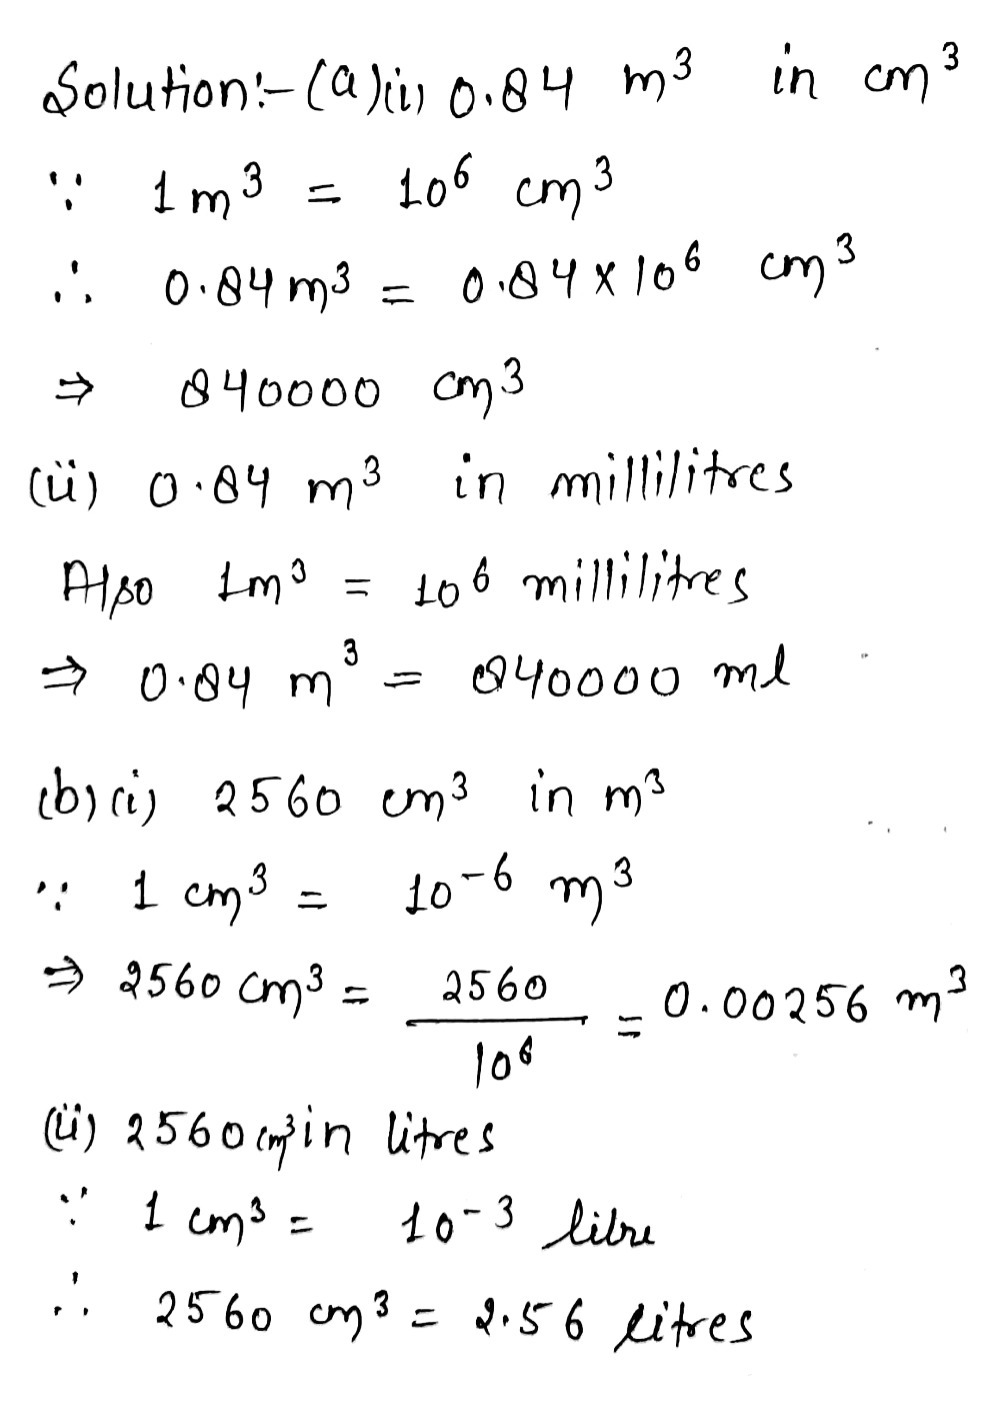 Solution:- (a)(i) 0.84 m³ in cm³
∵ 1 m³ = 10⁶ cm³
∴ 0.84 m³ = 0.84 × 10⁶ cm³
⇒ 840000 cm³
(ii) 0.84 m³ in millilitres
Also 1m³ = 10⁶ millilitres
⇒ 0.84 m³ = 840000 ml
(b) (i) 2560 cm³ in m³
∵ 1 cm³ = 10⁻⁶ m³
⇒ 2560 cm³ = 2560 / 10⁶ = 0.00256 m³
(ii) 2560 cm³ in litres
∵ 1 cm³ = 10⁻³ litre
∴ 2560 cm³ = 2.56 litres